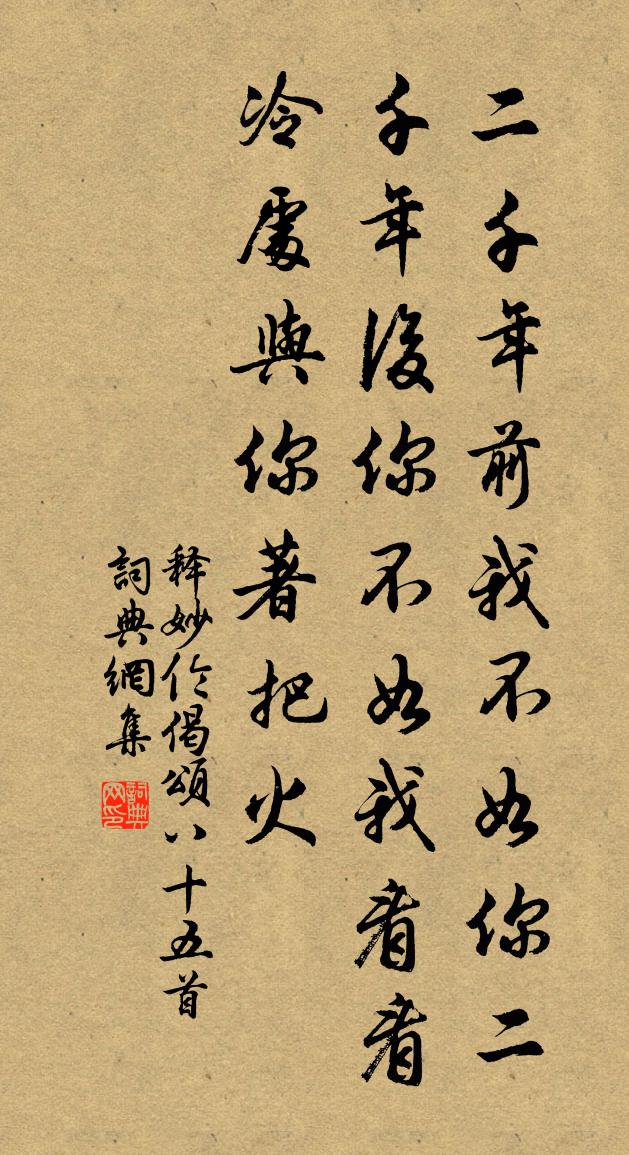 二千年前我不如你二
千年後你不如我看看
冷處與你著把火
释妙伦偈頌八十五首
詞典網集
詞典網印